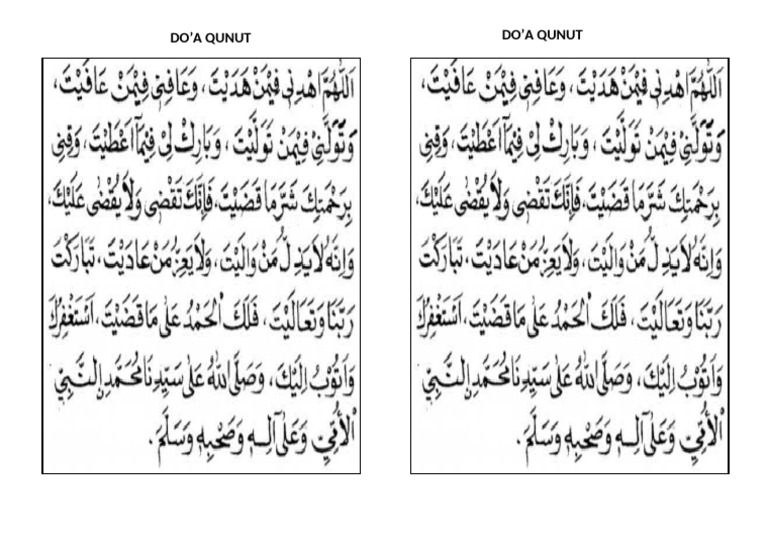 DO'A QUNUT
اَللّٰهُمَّ اهْدِنِيْ فِيْمَنْ هَدَيْتَ، وَعَافِنِيْ فِيْمَنْ عَافَيْتَ،
وَتَوَلَّنِيْ فِيْمَنْ تَوَلَّيْتَ، وَبَارِكْ لِيْ فِيْمَا اَعْطَيْتَ، وَقِنِيْ
بِرَحْمَتِكَ شَرَّمَا قَضَيْتَ، فَاِنَّكَ تَقْضِى وَلَا يُقْضٰى عَلَيْكَ،
وَاِنَّهُ لَايَذِلُّ مَنْ وَالَيْتَ، وَلَايَعِزُّ مَنْ عَادَيْتَ، تَبَارَكْتَ
رَبَّنَا وَتَعَالَيْتَ، فَلَكَ الْحَمْدُ عَلٰى مَا قَضَيْتَ، اَسْتَغْفِرُكَ
وَاَتُوْبُ اِلَيْكَ، وَصَلَّى اللهُ عَلٰى سَيِّدِنَا مُحَمَّدٍ النَّبِيِّ
الْأُمِّيِّ وَعَلٰى آلِـهِ وَصَحْبِهِ وَسَلَّمَ.
DO'A QUNUT
اَللّٰهُمَّ اهْدِنِيْ فِيْمَنْ هَدَيْتَ، وَعَافِنِيْ فِيْمَنْ عَافَيْتَ،
وَتَوَلَّنِيْ فِيْمَنْ تَوَلَّيْتَ، وَبَارِكْ لِيْ فِيْمَا اَعْطَيْتَ، وَقِنِيْ
بِرَحْمَتِكَ شَرَّمَا قَضَيْتَ، فَاِنَّكَ تَقْضِى وَلَا يُقْضٰى عَلَيْكَ،
وَاِنَّهُ لَايَذِلُّ مَنْ وَالَيْتَ، وَلَايَعِزُّ مَنْ عَادَيْتَ، تَبَارَكْتَ
رَبَّنَا وَتَعَالَيْتَ، فَلَكَ الْحَمْدُ عَلٰى مَا قَضَيْتَ، اَسْتَغْفِرُكَ
وَاَتُوْبُ اِلَيْكَ، وَصَلَّى اللهُ عَلٰى سَيِّدِنَا مُحَمَّدٍ النَّبِيِّ
الْأُمِّيِّ وَعَلٰى آلِـهِ وَصَحْبِهِ وَسَلَّمَ.